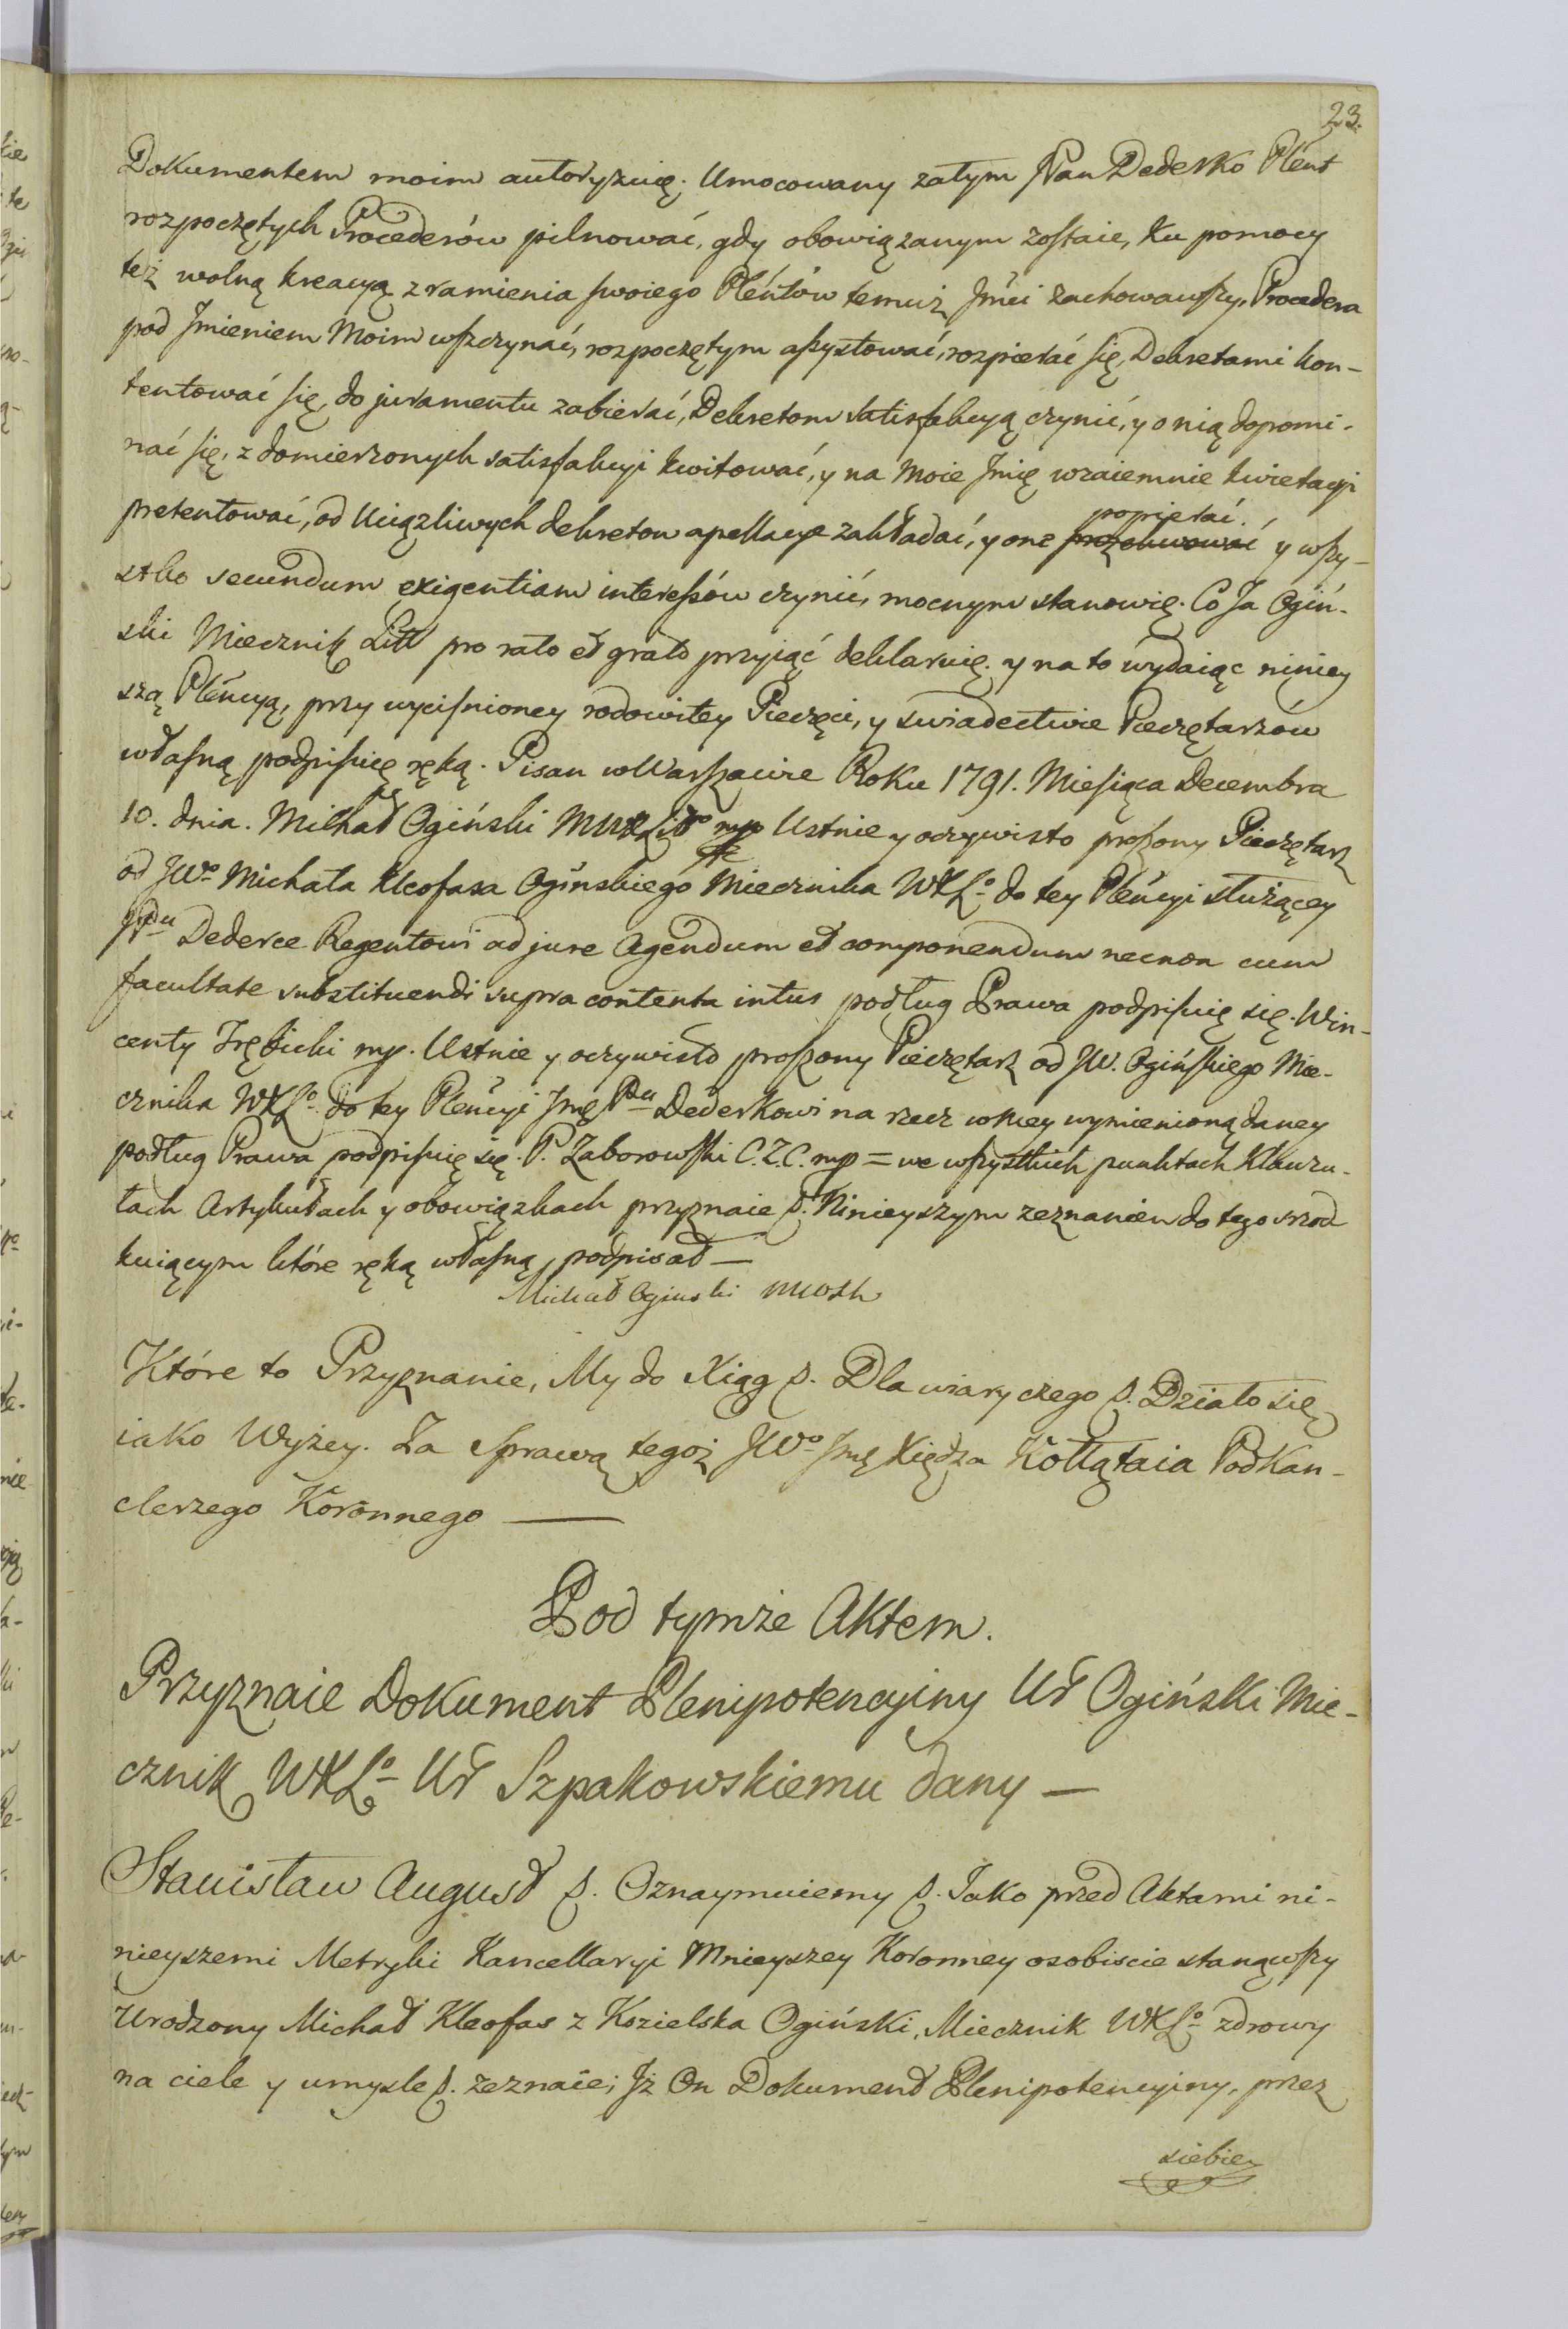 23.
Dokumentem moim autoryzuię; Umocowany zatym JPan Dederko Plent
rozpoczętych Procederów pilnować, gdy obowiązanym zostaie, ku pomocy
też wolną kreacyą z ramienia swoiego Pleńtów temuż Jmci zachowawszy, Procedera
pod Jmieniem Moim wszczynać, rozpoczętym assystować, rozpierać się, Dekretami kon-
tentować się, do juramentu zabierać, Dekretom satisfakcyą czynić, y o nią dopomi-
nać się, z domierzonych satisfakcyi kwitować, y na Moie Jmię wzaiemnie kwietacyi
pretentować, od Uciązliwych dekretow apellacye zakładać, y one popierać. y wszy-
stko secundum exigentiam interessów czynić, mocnym stanowię. Co Ja Ogiń-
ski Miecznik Litt pro rato et grato przyiąć deklaruię. y na to wydaiąc niniey
szą Pleńcyą, przy wycisnioney rodowitey Pieczęci, y swiadectwie Pieczętarzów
własną podpisuię ręką. Pisan w Warszawie Roku 1791. Miesiąca Decembra
10. dnia. Michał Ogiński MWXLitto mp Ustnie y oczywisto proszony Pieczętarz
od JWo Michała Kleofasa Ogińskiego Miecznika WXLo do tey Pleńcyi służącey
JPdu Dederce Regentowi ad jure Agendum et componendum necnon cum
facultate substituendi supra contenta intus podług Prawa podpisuię się. Win-
centy Trębicki mp. Ustnie y oczywisto proszony Pieczętarz od JW. Ogińskiego Mie-
cznika WXLo do tey Pleńcyi Jmę Pdu Dederkowi na rzecz w niey wymienioną daney
podług Prawa podpisuię się. P. Zaborowski C.Z.C. mp = we wszystkich punktach Klauzu-
łach Artykułach y obowiązkach przyznaie p. Ninieyszym zeznaniem do tego srzod
kuiącym które ręką własną podpisał —
Michał Oginski MWXL
Które to Przyznanie, My do Xiąg p. Dla wiary czego p. Działo się
iako Wyżey. Za Sprawą tegoż JWo Jmę Xiędza Kołłątaia PodKan-
clerzego Koronnego —
Pod tymże Aktem.
Przyznaie Dokument Plenipotencyiny Ur Ogiński Mie-
cznik WXLo Ur Szpakowskiemu dany —
Stanisław August p. Oznaymuiemy p. Jako przed Aktami ni-
nieyszemi Metryki Kancellaryi Mnieyszey Koronney osobiscie stanąwszy
Urodzony Michał Kleofas z Kozielska Ogiński, Miecznik WXLo zdrowy
na ciele y umysle p. zeznaie; Jż On Dokument Plenipotencyiny, przez
siebie